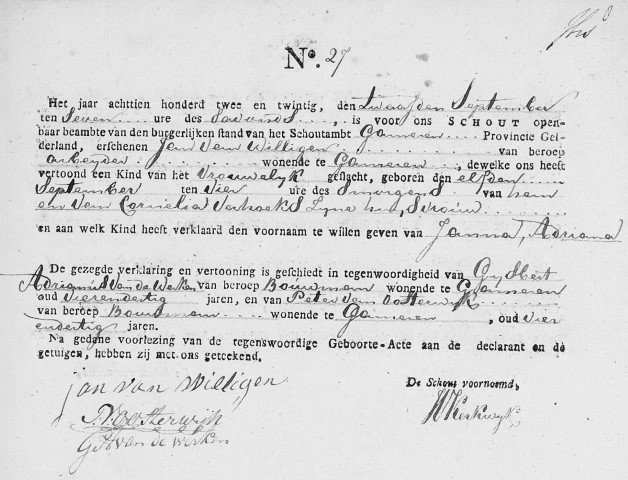 No. 27
Het jaar achttien honderd twee en twintig, den twaalfden September
ten Seven ure des Savonds, is voor ons SCHOUT open-
baar beambte van den burgerlijken stand van het Schoutambt Gameren Provincie Gel-
derland, erschenen Jan van Willigen van beroep
arbeyder wonende te Gameren, dewelke ons heeft
vertoond een Kind van het Vrouwelyk geslacht, geboren den elfden
September ten vier ure des Smorgens van hem
en van Cornelia Verhoeks Zyne huysvrouw
en aan welk Kind heeft verklaard den voornaam te willen geven van Janna, Adriana
De gezegde verklaring en vertooning is geschiedt in tegenwoordigheid van Gysbert
Adrianus van de Werken van beroep Bouwman wonende te Gameren
oud vierendertig jaren, en van Peter van Oosterwyk
van beroep Bouwman wonende te Gameren, oud vier
endertig jaren.
Na gedane voorlezing van de tegenswoordige Geboorte-Acte aan de declarant en de
getuigen, hebben zij met ons geteekend.
jan van willigen
De Schout voornoemd,
P. V. Oosterwijk
HKerkwyk
van de werken